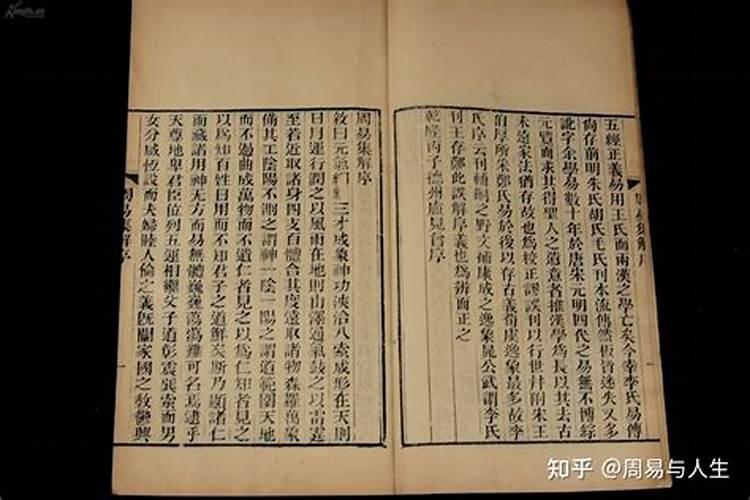 五經正義易用王氏而兩漢之學亡矣今幸李氏易傳
尚存前明朱氏胡氏毛氏刊本流傳然板皆迷失又多
訛字余學易數十年於唐宋元明四代之易無不博綜
元覽而求其得聖人之遺意者推漢學為長以其去古
未遠家法猶存故也為校正謬誤刊以行世并附朱王
伯厚所采鄭氏易於後以存古義荀虞逸象最多故李
氏序云刊輔嗣之野文補康成之逸象晁公武謂李氏
刊王存鄭此誤解序義也為辨而正之
乾隆丙子德州盧見曾序
周易集解序
周易集解序
敘曰元氣 三才成象神功浹洽八索成形在天則
日月運行潤之以風雨在地則山澤通氣鼓之以雷霆
至若近取諸身四支百體合其度遠取諸物森羅萬象
備其工陰陽不測之謂神一陰一陽之謂道範圍天地
而不過曲成萬物而不遺仁者見之以為仁知者見之
以為知百姓日用而不知君子之道鮮矣斯乃顯諸仁
而藏諸用神无方而易無體巍巍蕩蕩難可名焉逮乎
天尊地卑君臣位列五運相繼父子道彰震巽索而男
女分咸恆設而夫婦睦人倫之義既闡家國之教鬱興
周易集解序
知乎 @周易与人生